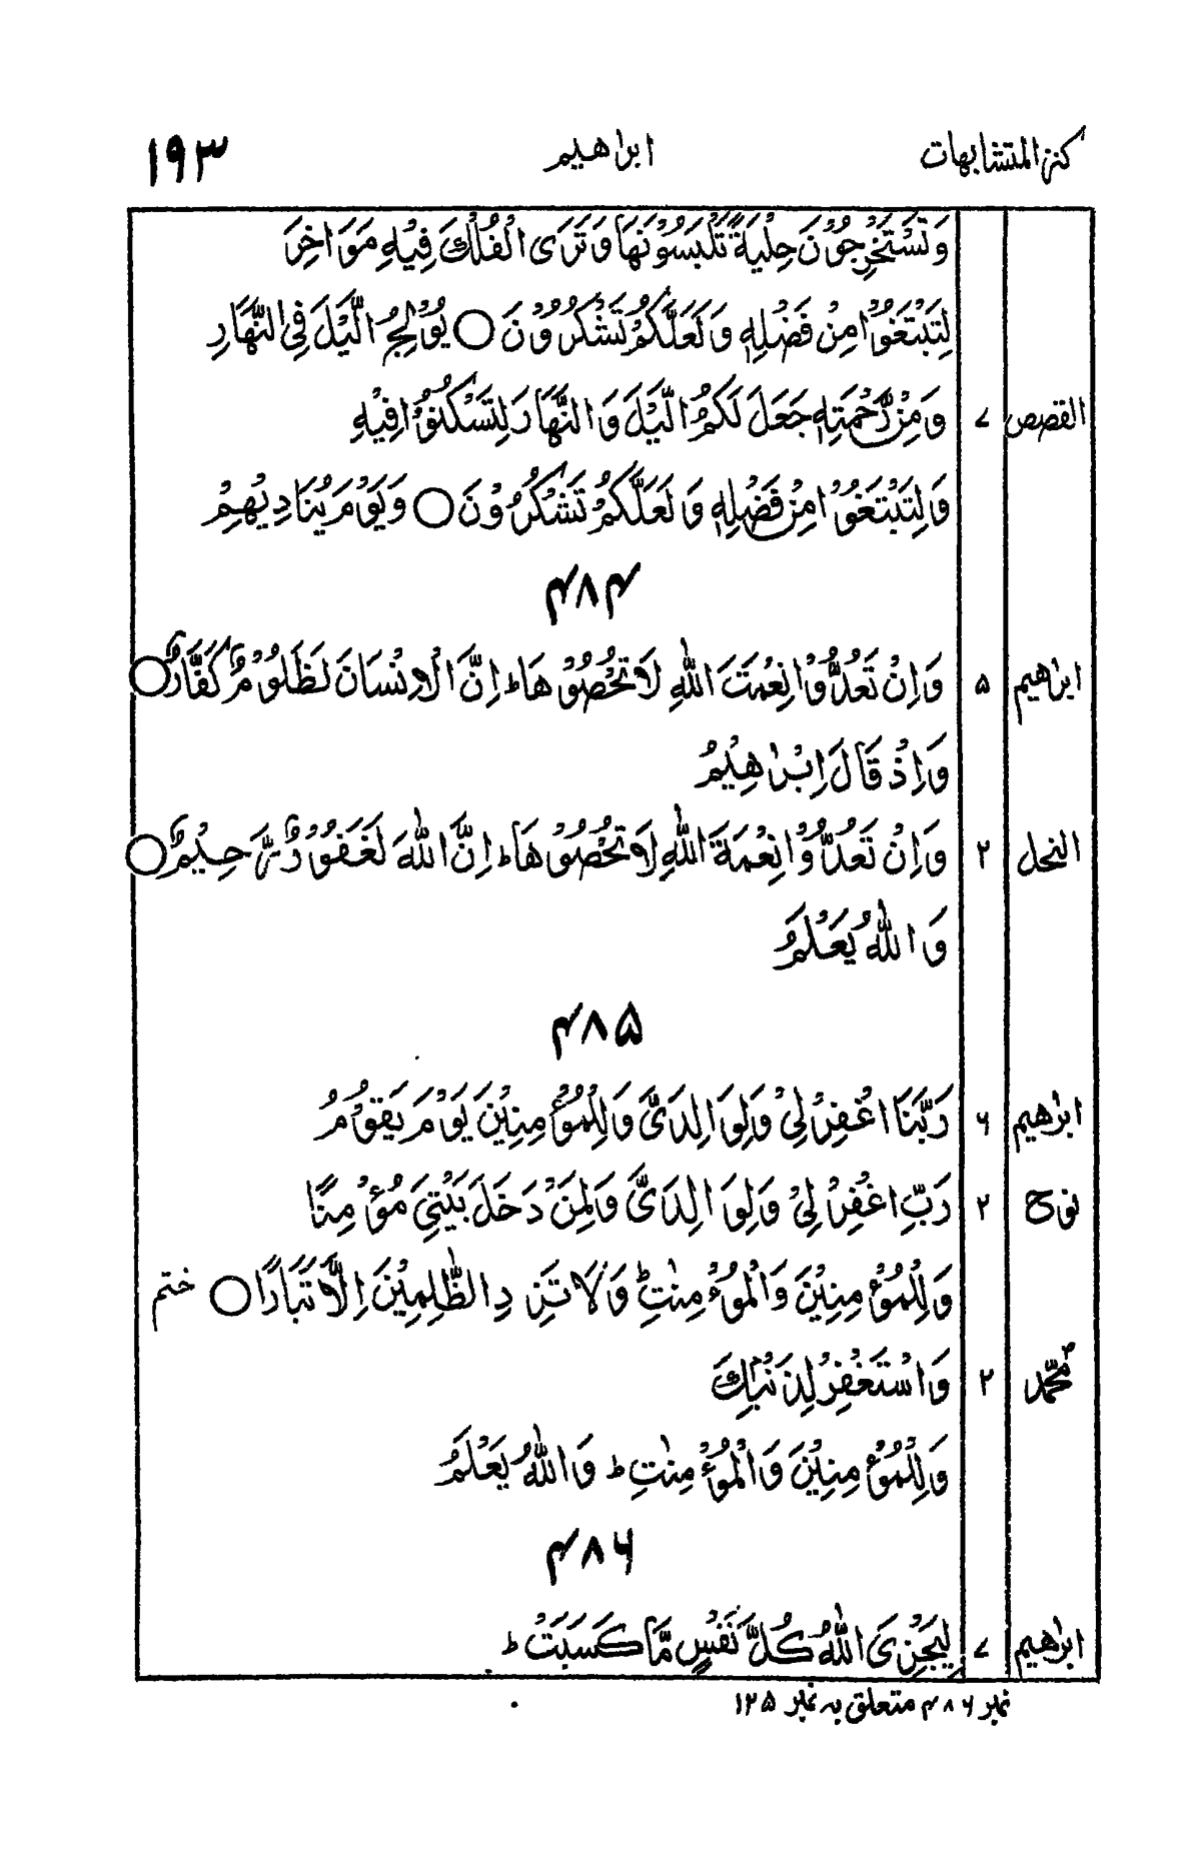 كنز المتشابهات ابراهيم ۱۹۳
وَتَسْتَخْرِجُوْنَ حِلْيَةً تَلْبَسُوْنَهَا وَتَرَى الْفُلْكَ فِيْهِ مَوَاخِرَ
لِتَبْتَغُوْا مِنْ فَضْلِهٖ وَلَعَلَّكُمْ تَشْكُرُوْنَ ○ يُوْلِجُ الَّيْلَ فِى النَّهَارِ
القصص ۷ وَمِنْ رَّحْمَتِهٖ جَعَلَ لَكُمُ الَّيْلَ وَالنَّهَارَ لِتَسْكُنُوْا فِيْهِ
وَلِتَبْتَغُوْا مِنْ فَضْلِهٖ وَلَعَلَّكُمْ تَشْكُرُوْنَ ○ وَيَوْمَ يُنَادِيْهِمْ
۴۸۴
ابرٰهيم ۵ وَاِنْ تَعُدُّوْا نِعْمَتَ اللّٰهِ لَا تُحْصُوْهَا ؕ اِنَّ الْاِنْسَانَ لَظَلُوْمٌ كَفَّارٌ ○
وَاِذْ قَالَ اِبْرٰهِيْمُ
النحل ۲ وَاِنْ تَعُدُّوْا نِعْمَةَ اللّٰهِ لَا تُحْصُوْهَا ؕ اِنَّ اللّٰهَ لَغَفُوْرٌ رَّحِيْمٌ ○
وَاللّٰهُ يَعْلَمُ
۴۸۵
ابرٰهيم ۶ رَبَّنَا اغْفِرْ لِيْ وَلِوَالِدَيَّ وَلِلْمُؤْمِنِيْنَ يَوْمَ يَقُوْمُ
نوح ۲ رَبِّ اغْفِرْ لِيْ وَلِوَالِدَيَّ وَلِمَنْ دَخَلَ بَيْتِيَ مُؤْمِنًا
وَلِلْمُؤْمِنِيْنَ وَالْمُؤْمِنٰتِ ؕ وَلَا تَزِدِ الظّٰلِمِيْنَ اِلَّا تَبَارًا ○ ختم
محمّد ۲ وَاسْتَغْفِرْ لِذَنْۢبِكَ
وَلِلْمُؤْمِنِيْنَ وَالْمُؤْمِنٰتِ ؕ وَاللّٰهُ يَعْلَمُ
۴۸۶
ابرٰهيم ۷ لِيَجْزِىَ اللّٰهُ كُلَّ نَفْسٍ مَّا كَسَبَتْ ؕ
نمبر ۴۸۶ متعلق به نمبر ۱۲۵